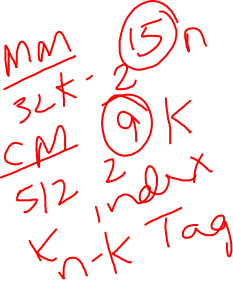 MM
32K - 2 15 n
CM
512 2 9 K
K index
n-K Tag